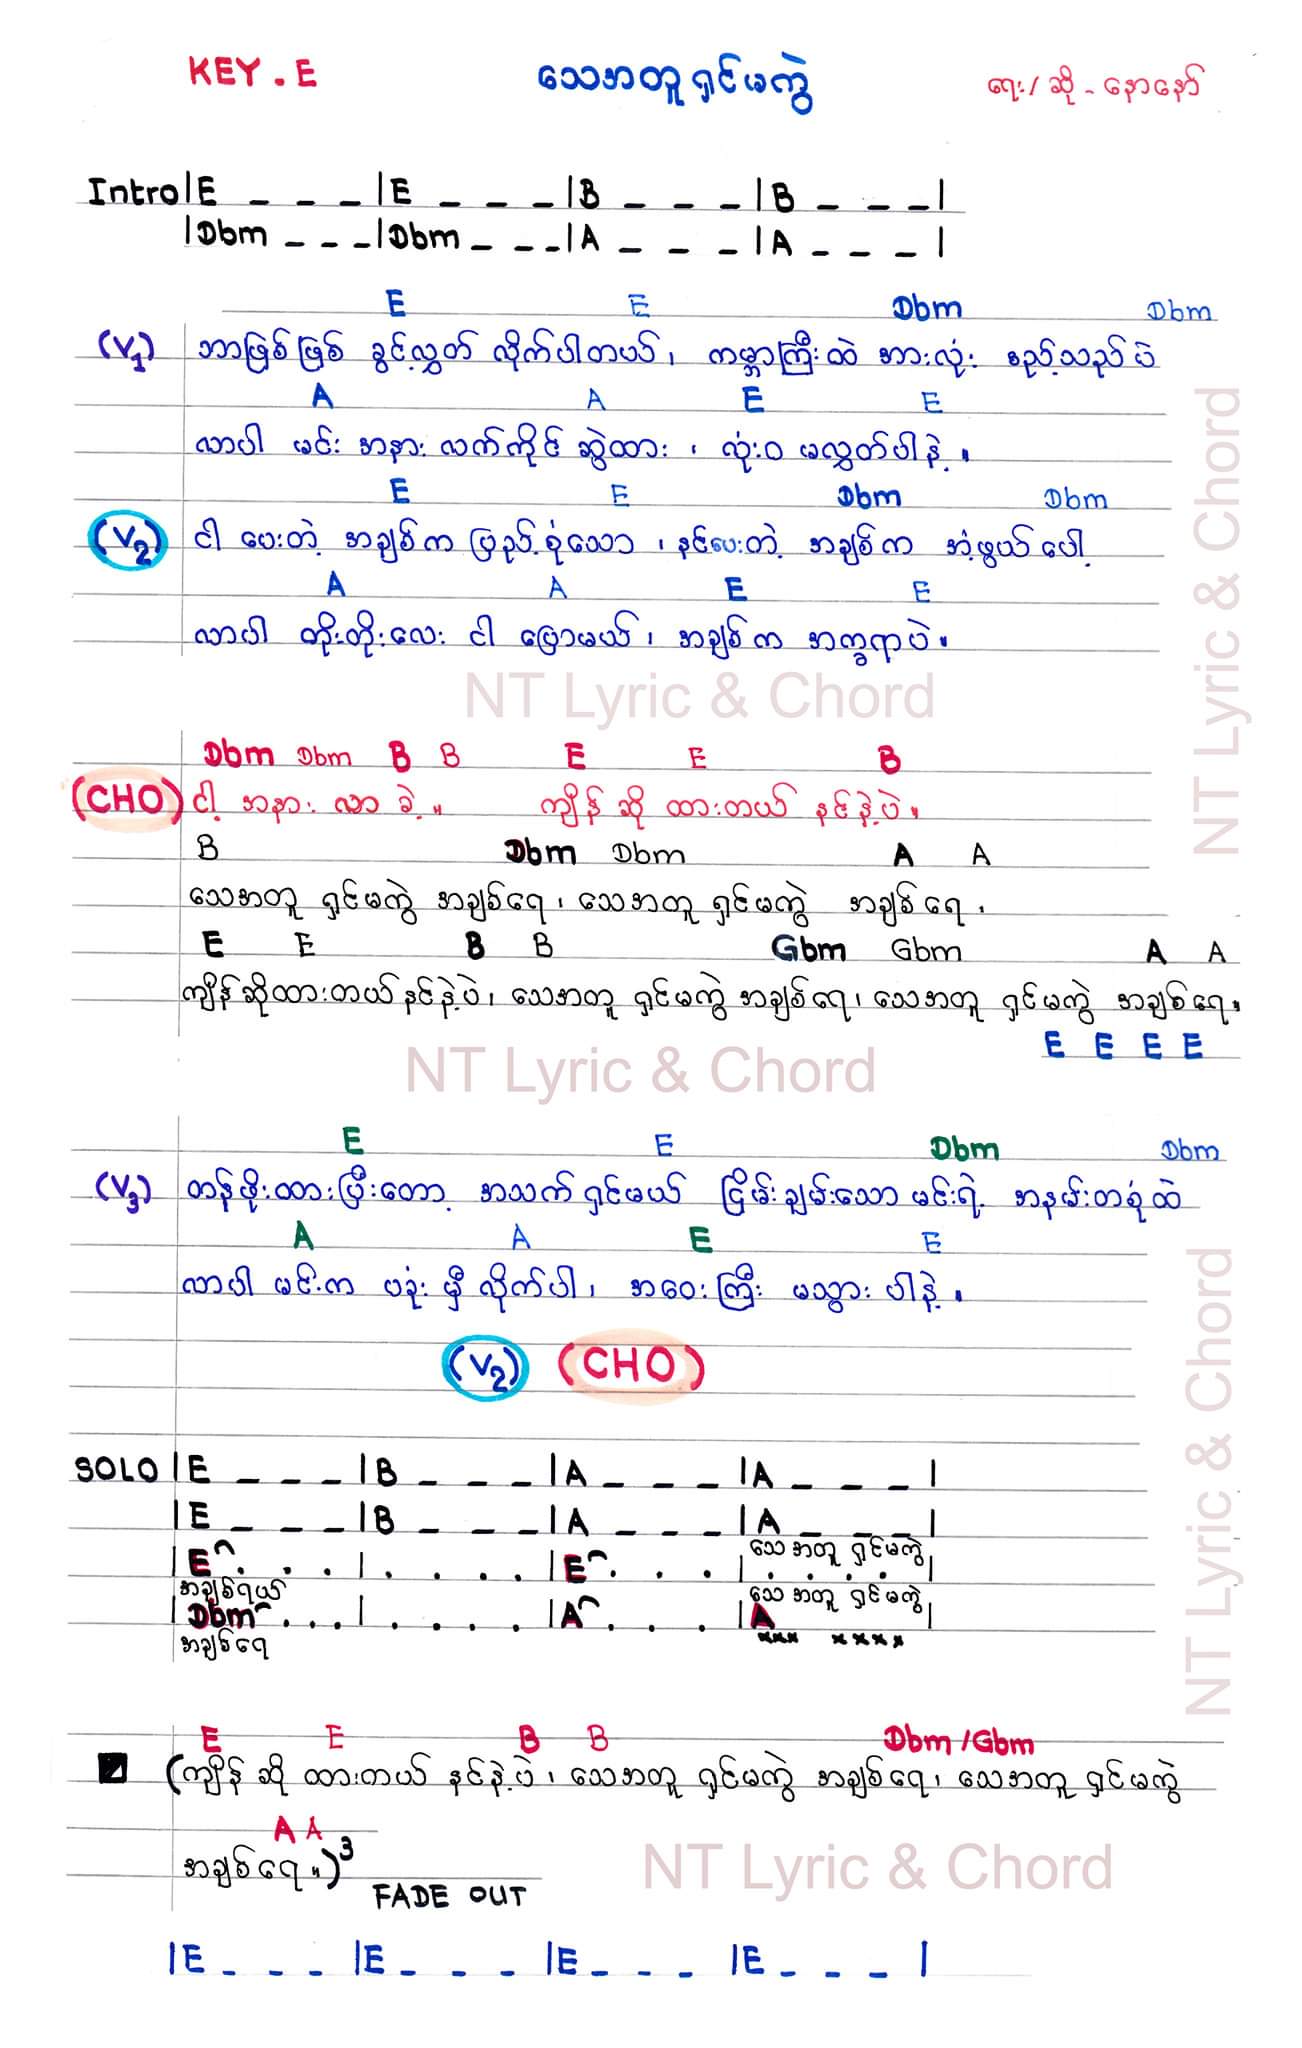 KEY . E သေအတူရှင်မကွဲ ရေး/ ဆို - နောနော်
Intro |E _ _ _ |E _ _ _ |B _ _ _ |B _ _ _ |
|Dbm _ _ _ |Dbm _ _ _ |A _ _ _ |A _ _ _ |
E E Dbm Dbm
(V1) ဘာဖြစ်ဖြစ် ခွင့်လွှတ် လိုက်ပါတယ်၊ ကမ္ဘာကြီးထဲ အားလုံး ဧည့်သည်ပဲ
A A E E
လာပါ မင်း အနား လက်ကိုင် ဆွဲထား ၊ လုံးဝ မလွှတ်ပါနဲ့ ။
E E Dbm Dbm
(V2) ငါ ပေးတဲ့ အချစ်က ပြည့်စုံသော ၊ နင်ပေးတဲ့ အချစ်က အံ့ဖွယ်ပေါ့
A A E E
လာပါ တိုးတိုးလေး ငါ ပြောမယ် ၊ အချစ်က အက္ခရာပဲ ။
NT Lyric & Chord
NT Lyric & Chord
Dbm Dbm B B E E B
(CHO) ငါ့ အနား လာ ခဲ့ ။ ကျိန် ဆို ထားတယ် နင်နဲ့ပဲ ။
B Dbm Dbm A A
သေအတူ ရှင်မကွဲ အချစ်ရေ ၊ သေအတူ ရှင်မကွဲ အချစ်ရေ ၊
E E B B Gbm Gbm A A
ကျိန်ဆိုထားတယ် နင်နဲ့ပဲ ၊ သေအတူ ရှင်မကွဲ အချစ်ရေ ၊ သေအတူ ရှင်မကွဲ အချစ်ရေ ။
E E E E
NT Lyric & Chord
E E Dbm Dbm
(V3) တန်ဖိုးထားပြီးတော့ အသက်ရှင်မယ် ငြိမ်းချမ်းသော မင်းရဲ့ အနမ်းတစုံထဲ
A A E E
လာပါ မင်းက ပခုံး မှီ လိုက်ပါ ၊ အဝေးကြီး မသွား ပါနဲ့ ။
NT Lyric & Chord
(V2) (CHO)
SOLO |E _ _ _ |B _ _ _ |A _ _ _ |A _ _ _ |
|E _ _ _ |B _ _ _ |A _ _ _ |A _ _ _ |
သေ အတူ ရှင်မကွဲ
|E^ . . . |. . . . |E^ . . . |. . . . |
အချစ်ရယ် သေ အတူ ရှင်မကွဲ
|Dbm^ . . . |. . . . |A^ . . . |A |
အချစ်ရေ xxx xxxx
E E B B Dbm /Gbm
(ကျိန် ဆို ထားတယ် နင်နဲ့ပဲ ၊ သေအတူ ရှင်မကွဲ အချစ်ရေ ၊ သေအတူ ရှင်မကွဲ
A A
အချစ်ရေ ။)3
NT Lyric & Chord
FADE OUT
|E _ _ _ |E _ _ _ |E _ _ _ |E _ _ _ |